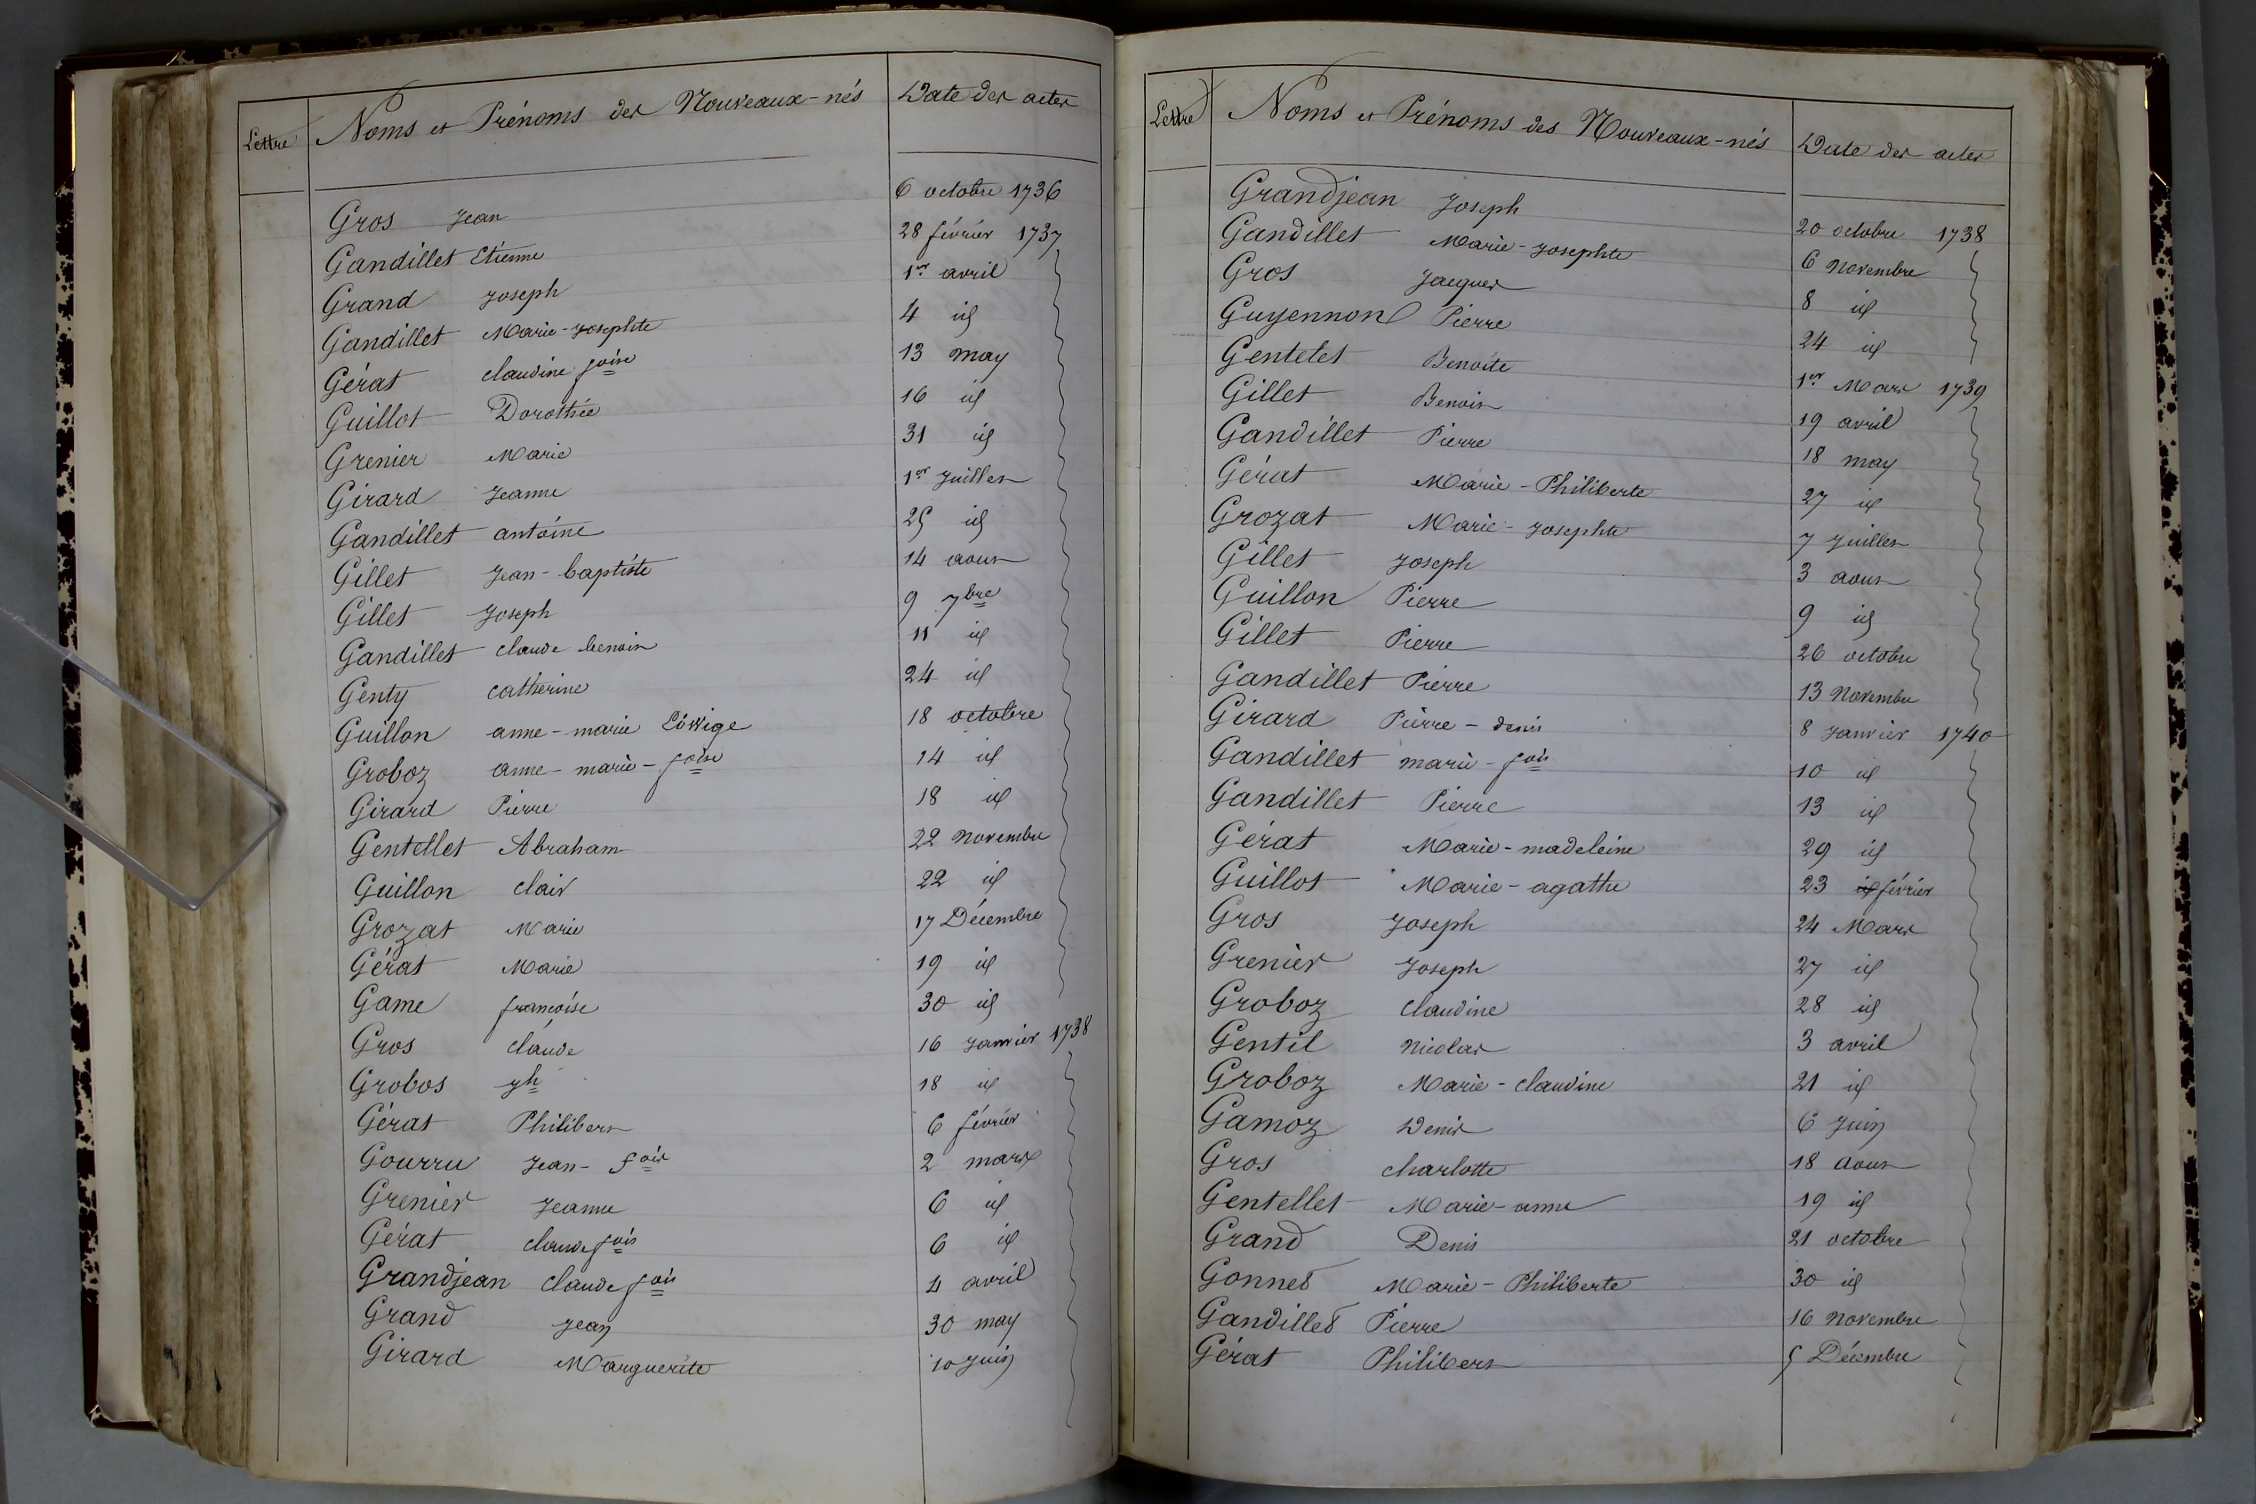 Lettre Noms et Prénoms des Nouveaux-nés Date des actes
Gros Jean 6 octobre 1736
Gandillet Etienne 28 février 1737
Grand Joseph 1er avril
Gandillet Marie-Josephte 4 id
Gérat claudine foise 13 may
Guillot Dorothée 16 id
Grenier Marie 31 id
Girard Jeanne 1er Juillet
Gandillet antoine 25 id
Gillet Jean-baptiste 14 aout
Gillet Joseph 9 7bre
Gandillet claude benoit 11 id
Genty catherine 24 id
Guillon anne-marie 18 octobre
Groboz anne-marie-foise 14 id
Girard Pierre 18 id
Gentellet Abraham 22 novembre
Guillon clair 22 id
Grozat Marie 17 Décembre
Gérat Marie 19 id
Game francoise 30 id
Gros claude 16 Janvier 1738
Grobos jh 18 id
Gérat Philibert 6 février
Gourru Jean-fois 2 mars
Grenier Jeanne 6 id
Gérat claude fois 6 id
Grandjean claude fois 4 avril
Grand Jean 30 may
Girard Marguerite 10 Juin
Lettre Noms et Prénoms des Nouveaux-nés Date des actes
Grandjean Joseph 20 octobre 1738
Gandillet Marie-Josephte 6 Novembre
Gros Jacques 8 id
Guyennon Pierre 24 id
Gentelet Benoite 1er Mars 1739
Gillet Benoit 19 avril
Gandillet Pierre 18 may
Gérat Marie-Philiberte 27 id
Grozat Marie-Josephte 7 Juillet
Gillet Joseph 3 aout
Guillon Pierre 9 id
Gillet Pierre 26 octobre
Gandillet Pierre 13 Novembre
Girard Pierre-denis 8 Janvier 1740
Gandillet marie-fois 10 id
Gandillet Pierre 13 id
Gérat Marie-madeleine 29 id
Guillot Marie-agathe 23 id février
Gros Joseph 24 Mars
Grenier Joseph 27 id
Groboz claudine 28 id
Gentil Nicolas 3 avril
Groboz Marie-claudine 21 id
Gamoz Denis 6 Juin
Gros charlotte 18 Aout
Gentellet Marie-anne 19 id
Grand Denis 21 octobre
Gonnet Marie-Philiberte 30 id
Gandillet Pierre 16 Novembre
Gérat Philibert 5 Décembre